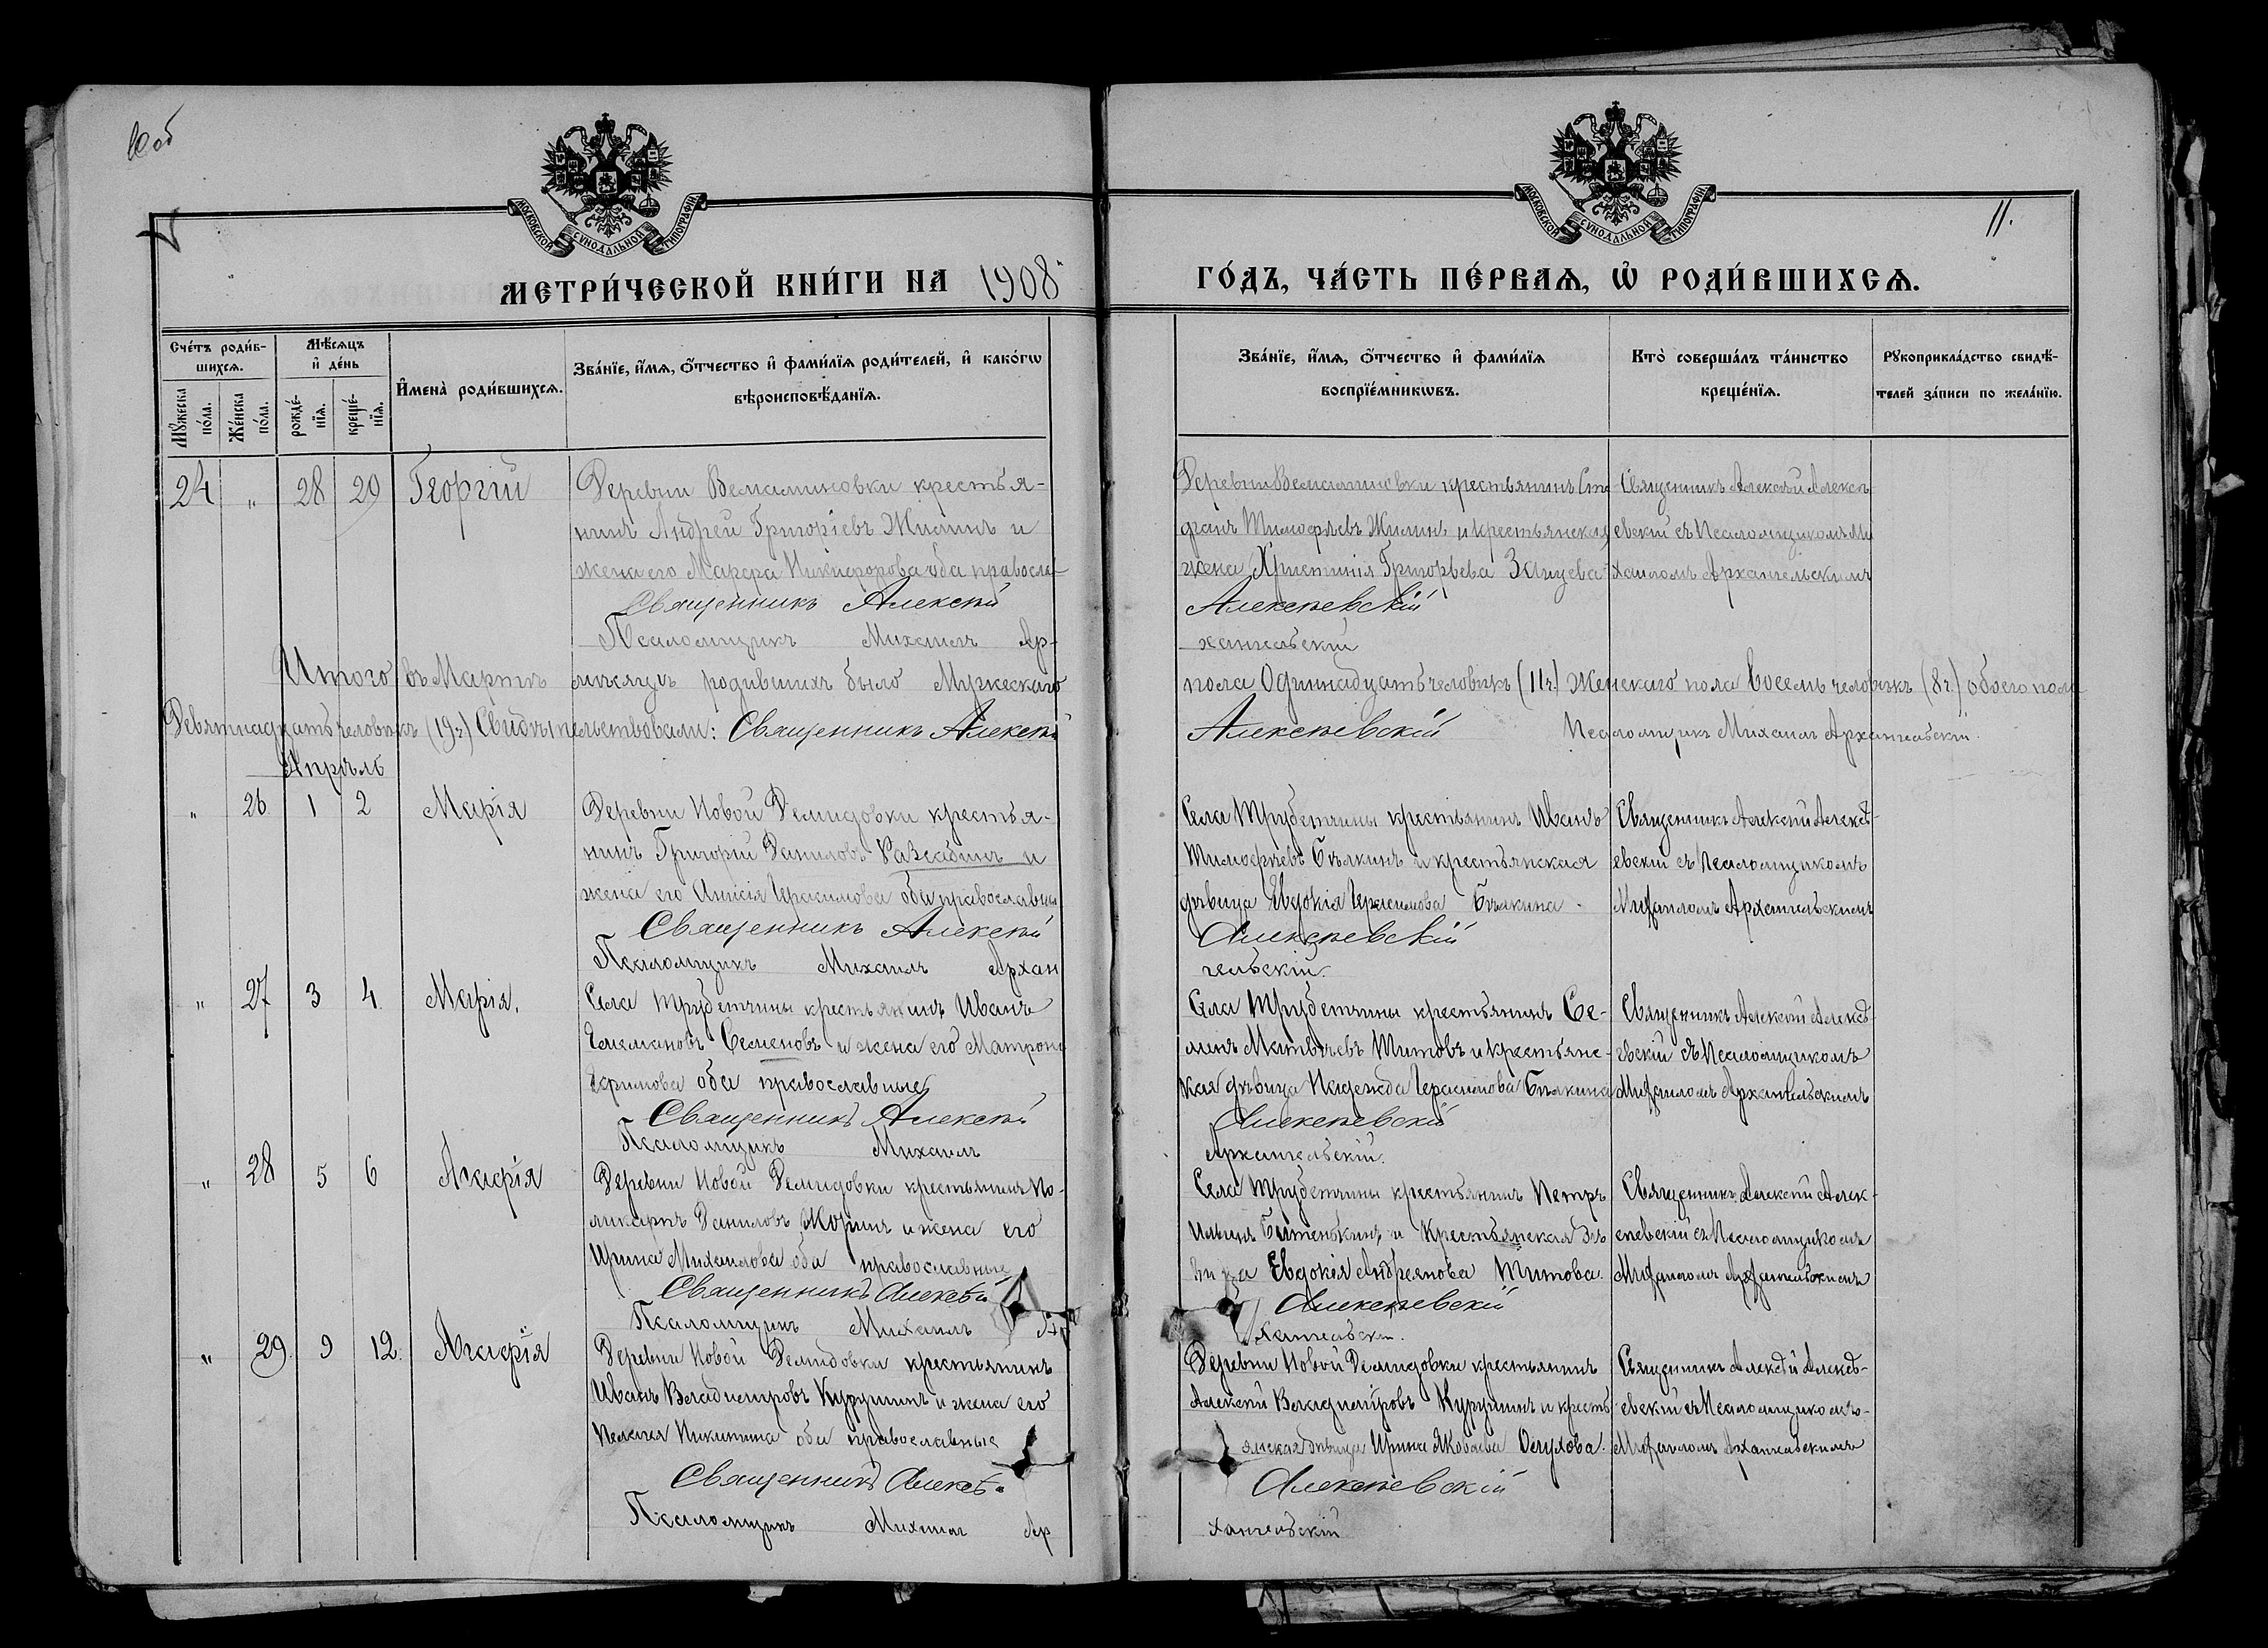 10 об
11.
МОСКОВСКОЙ СѴНОДАЛЬНОЙ ТИПОГРАФІИ
МОСКОВСКОЙ СѴНОДАЛЬНОЙ ТИПОГРАФІИ
МЕТРИ́ЧЕСКОЙ КНИ́ГИ НА 1908 ГО́ДЪ, ЧА́СТЬ ПЕ́РВАѦ, Ѡ҆ РОДИ́ВШИХСѦ.
Сче́тъ роди́вшихсѧ.
Мꙋ́жеска по́ла.
Же́нска по́ла.
Мѣ́сѧцъ и҆ де́нь
рожде́нїѧ.
креще́нїѧ.
И҆мена̀ роди́вшихсѧ.
Зва́нїе, и҆́мѧ, ѻ҆́тчество и҆ фами́лїѧ роди́телей, и҆ како́гѡ
вѣроисповѣ́данїѧ.
Зва́нїе, и҆́мѧ, ѻ҆́тчество и҆ фами́лїѧ
воспрїе́мникѡвъ.
Кто̀ соверша́лъ та́инство
креще́нїѧ.
Рꙋкоприкла́дство свидѣ́-
телей за́писи по жела́нїю.
24 " 28 29 Георгій
Деревни Вельяминовки крестья-
нинъ Андрей Григоріевъ Жилинъ и
жена его Марѳа Никифорова оба правосла-
Священникъ Алексѣй
Псаломщикъ Михаилъ Ар-
Деревни Вельяминовки крестьянинъ Сте
фанъ Тимофѣевъ Жилинъ и крестьянская
жена Христинія Григорьева
Алексѣевскій
хангельскій
Священникъ Алексѣй Алексѣ-
евскій съ Псаломщикомъ Ми
хаиломъ Архангельскимъ
Итого въ Мартѣ мѣсяцѣ родившихъ было Мужескаго пола Одиннадцать человѣкъ (11 ч.) Женскаго пола Восемь человѣкъ (8 ч.) обоего пола
Девятнадцать человѣкъ (19 ч.) Свидѣтельствовали: Священникъ Алексѣй Алексѣевскій Псаломщикъ Михаилъ Архангельскій.
Апрѣль
" 26. 1 2 Марія
Деревни Новой Демидовки крестья-
нинъ Григорій Даниловъ и
жена его Анисія Герасимова оба православны
Священникъ Алексѣй
Псаломщикъ Михаилъ Архан
Села Трубетчины крестьянинъ Иванъ
Тимофѣевъ Бѣлкинъ и крестьянская
дѣвица Евдокія Герасимова Бѣлкина
Алексѣевскій
гельскій.
Священникъ Алексѣй Алексѣ-
евскій съ Псаломщикомъ
Михаиломъ Архангельскимъ
" 27 3 4. Марія.
Села Трубетчины крестьянинъ Иванъ
Семеновъ и жена его Матрона
Ефимова оба православные
Священникъ Алексѣй
Псаломщикъ Михаилъ
Села Трубетчины крестьянинъ Се-
менъ Матвѣевъ Титовъ и крестьянс-
кая дѣвица Надежда Герасимова Бѣлкина
Алексѣевскій
Архангельскій.
Священникъ Алексѣй Алексѣ-
евскій съ Псаломщикомъ
Михаиломъ Архангельскимъ
" 28 5 6 Агафія
Деревни Новой Демидовки крестьянинъ По-
ликарпъ Даниловъ и жена его
Ирина Михаилова оба православные
Священникъ Алексѣй
Псаломщикъ Михаилъ Ар
Села Трубетчины крестьянинъ Петръ
Ильинъ и Крестьянская дѣ
вица Евдокія Андреянова Титова.
Алексѣевскій
хангельскій.
Священникъ Алексѣй Алек-
сѣевскій съ Псаломщикомъ
Михаиломъ Архангельскимъ
" 29. 9 12. Агафія
Деревни Новой Демидовки крестьянинъ
Иванъ Владиміровъ Курушинъ и жена его
Пелагія Никитина оба православные
Священникъ Алексѣй
Псаломщикъ Михаилъ Ар
Деревни Новой Демидовки крестьянинъ
Алексѣй Владиміровъ Курушинъ и кресть
янская дѣвица Ирина Яковлева
Алексѣевскій
хангельскій
Священникъ Алексѣй Алексѣ-
евскій съ Псаломщикомъ
Михаиломъ Архангельскимъ